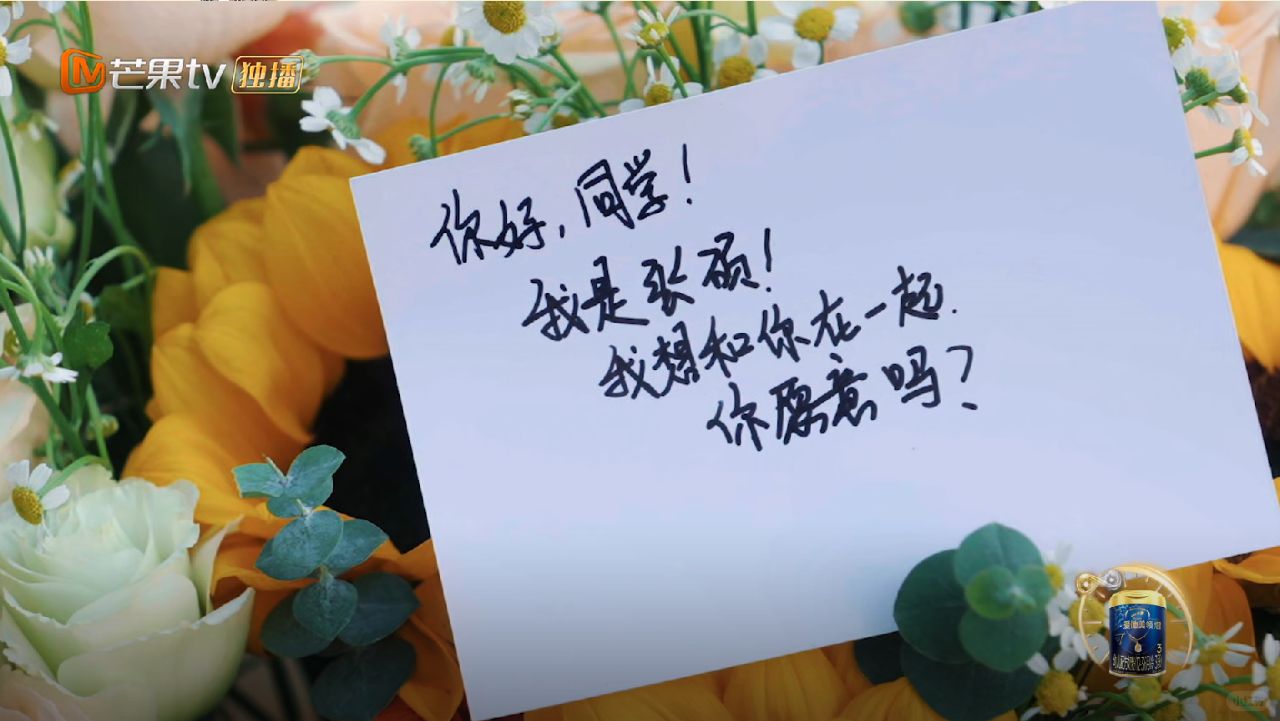 芒果tv 独播
你好，同学！
我是张硕！
我想和你在一起.
你愿意吗？